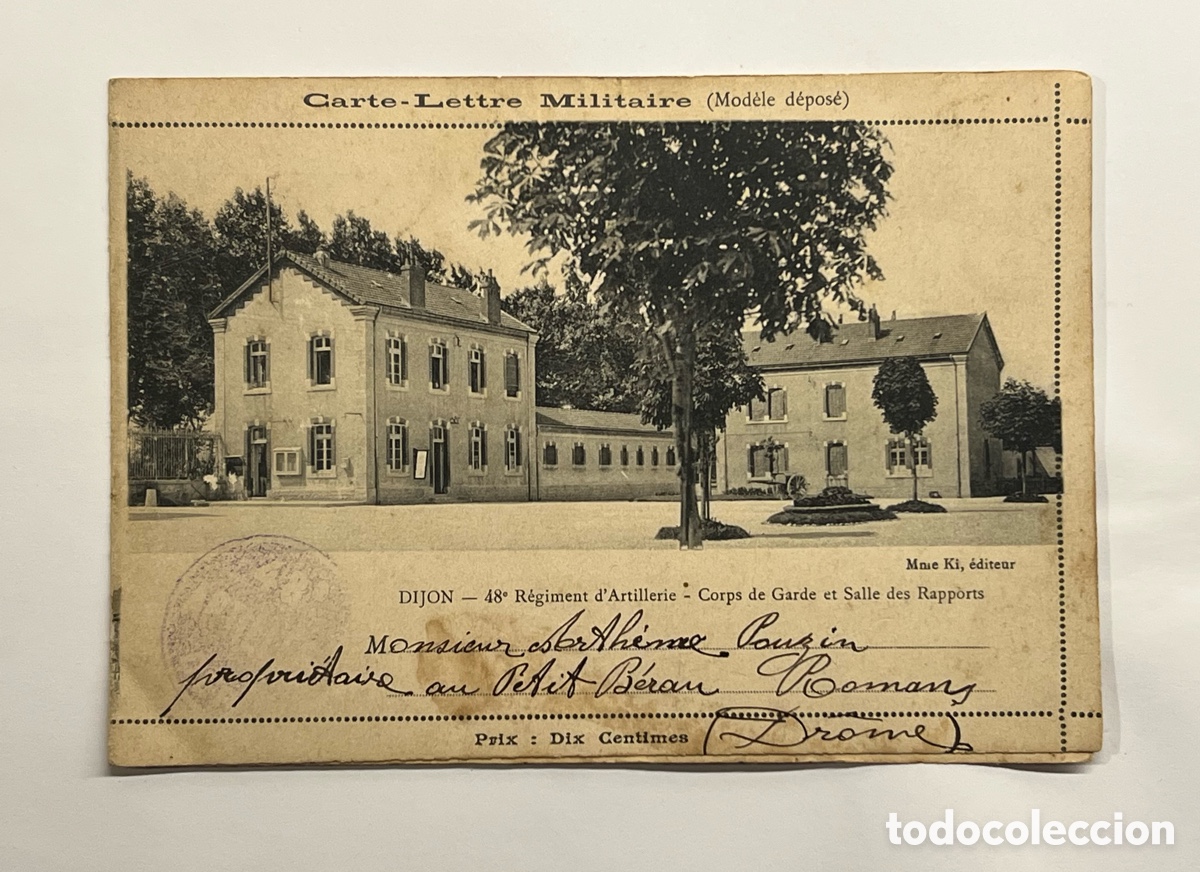 Carte-Lettre Militaire (Modèle déposé)
Mme Ki, éditeur
DIJON — 48e Régiment d'Artillerie - Corps de Garde et Salle des Rapports
Monsieur Arthème Pouzin
propriétaire au Petit Béran Romans
Prix : Dix Centimes (Drôme)
todocoleccion.net